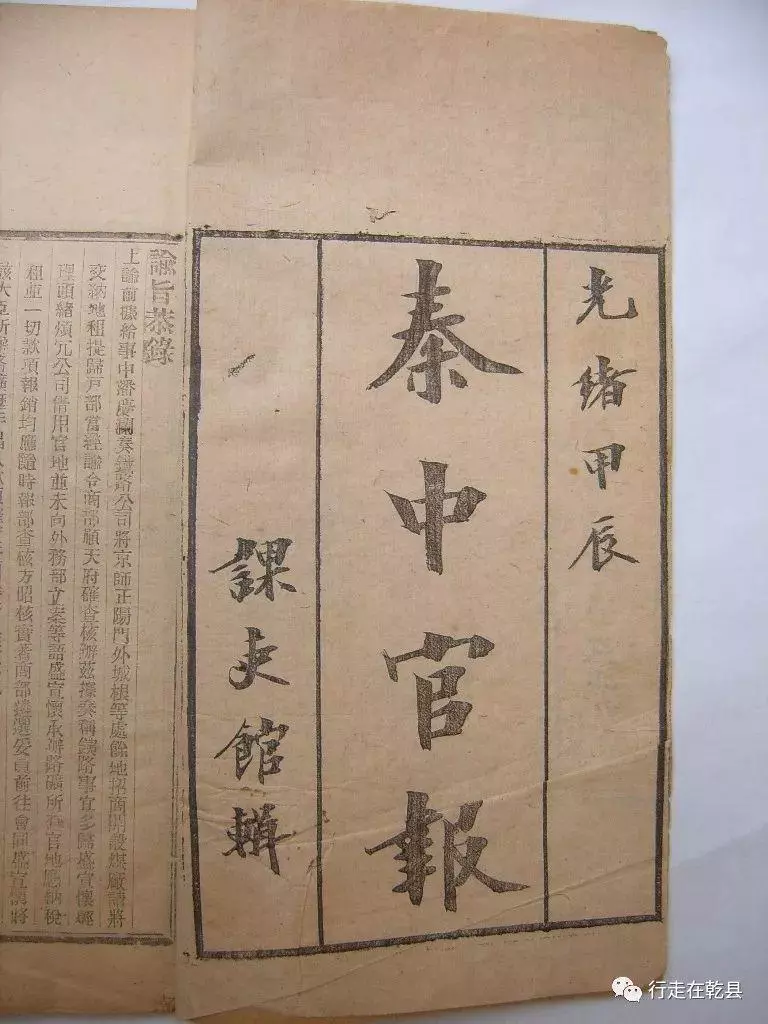 光緒甲辰
秦中官報
課吏館輯
諭旨恭錄
上諭前據給事中潘慶瀾奏鐵路公司將京師正陽門外城根等處餘地招商開設煤廠請將
交納地租提歸戶部當經諭令商部順天府確查核辦茲據奏稱鐵路事宜多歸盛宣懷經
理頭緒煩冗公司借用官地並未向外務部立案等語盛宣懷承辦路礦所有官地應納稅
租並一切款項報銷均應隨時報部查核方昭核實著商部遴選委員前往會同盛宣懷將
行走在乾县